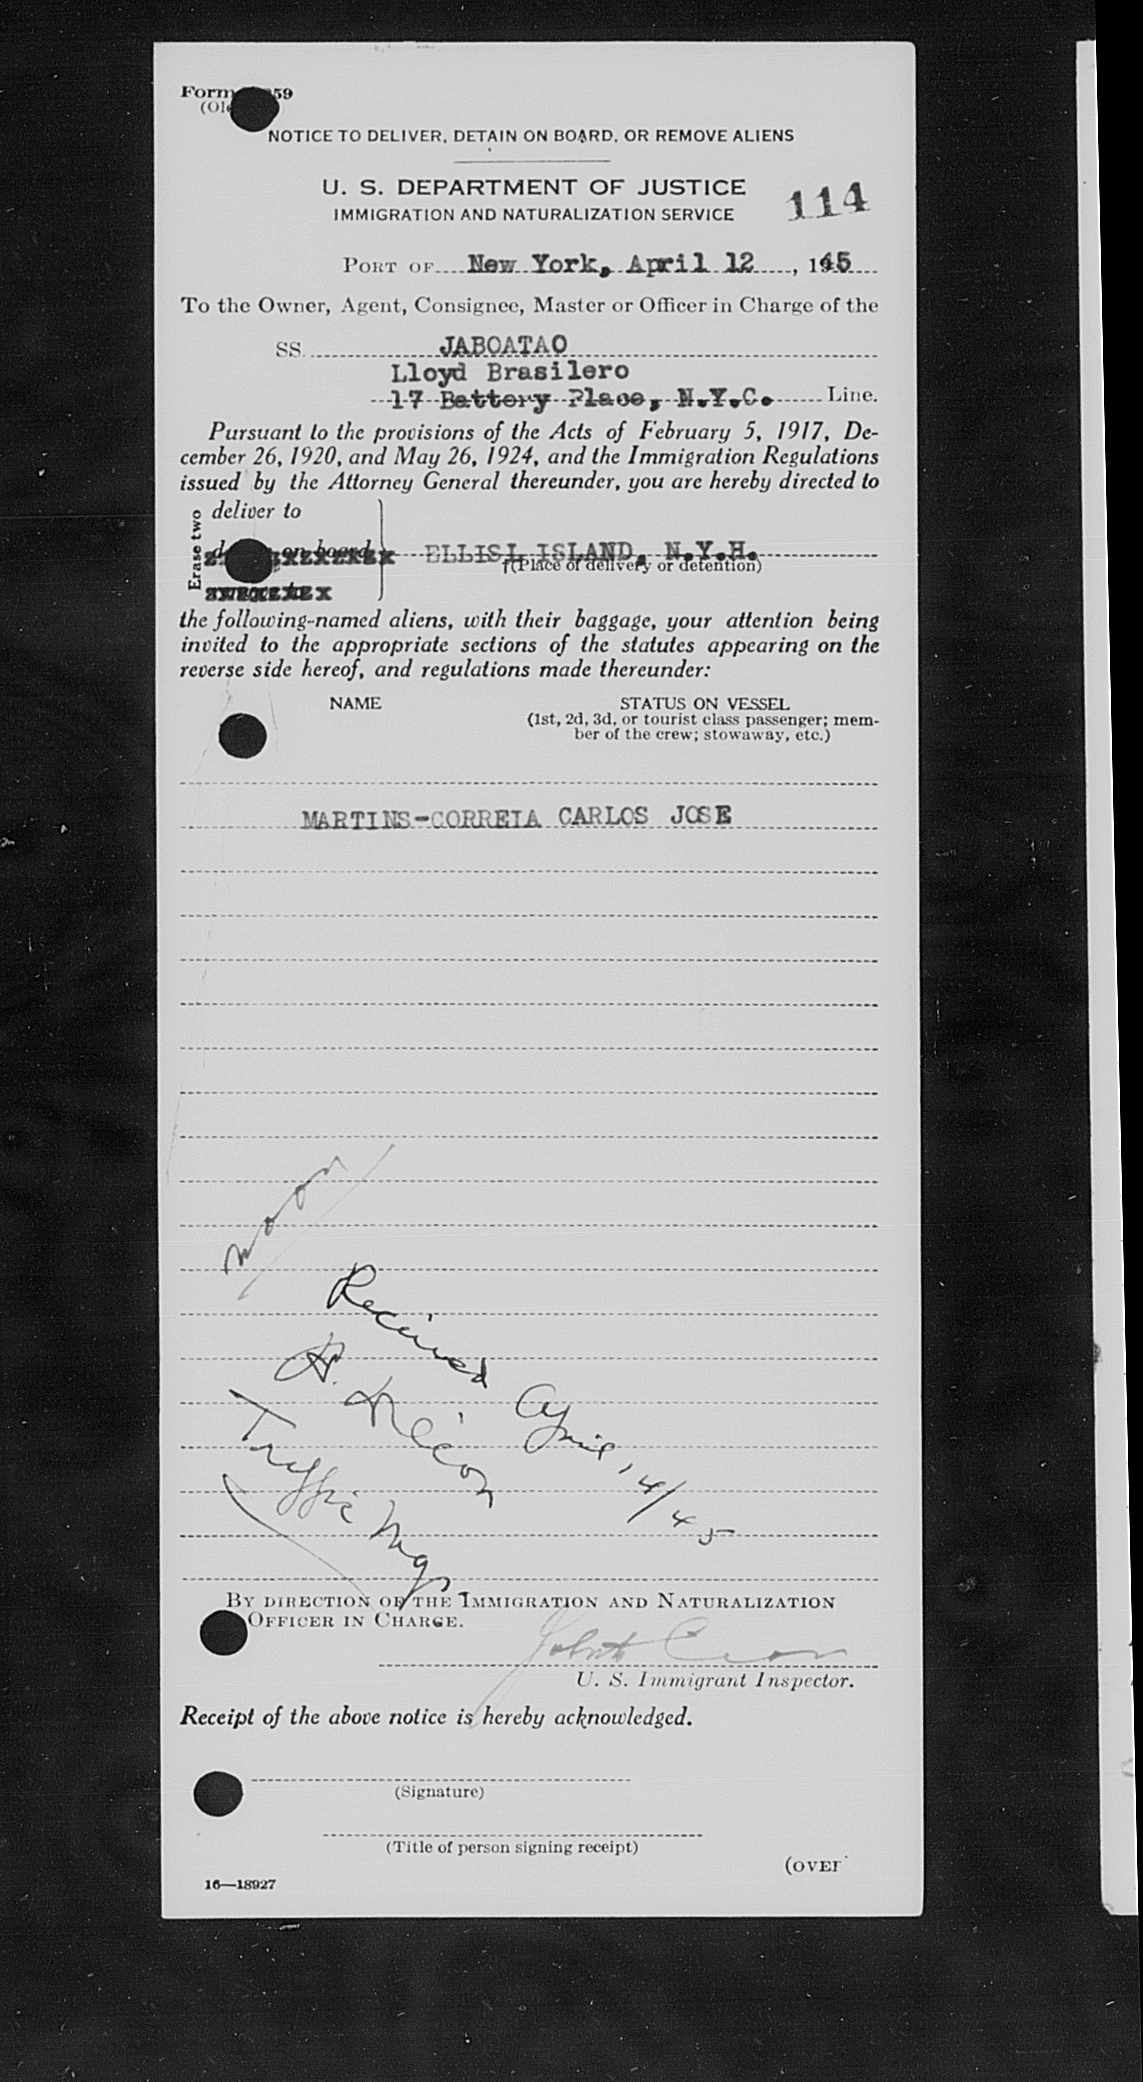 Form 59
(Ol
NOTICE TO DELIVER, DETAIN ON BOARD, OR REMOVE ALIENS
U. S. DEPARTMENT OF JUSTICE
IMMIGRATION AND NATURALIZATION SERVICE
114
PORT OF New York, April 12, 1945
To the Owner, Agent, Consignee, Master or Officer in Charge of the
SS. JABOATAO
Lloyd Brasilero
17 Battery Place, N.Y.C. Line.
Pursuant to the provisions of the Acts of February 5, 1917, De-
cember 26, 1920, and May 26, 1924, and the Immigration Regulations
issued by the Attorney General thereunder, you are hereby directed to
Erase two
deliver to
on board
ELLISI ISLAND, N.Y.H.
†(Place of delivery or detention)
the following-named aliens, with their baggage, your attention being
invited to the appropriate sections of the statutes appearing on the
reverse side hereof, and regulations made thereunder:
NAME
STATUS ON VESSEL
(1st, 2d, 3d, or tourist class passenger; mem-
ber of the crew; stowaway, etc.)
MARTINS-CORREIA CARLOS JOSE
noon
Received April 14/45
Traffic Mgr
BY DIRECTION OF THE IMMIGRATION AND NATURALIZATION
OFFICER IN CHARGE.
U. S. Immigrant Inspector.
Receipt of the above notice is hereby acknowledged.
(Signature)
(Title of person signing receipt)
(OVER
16—18927